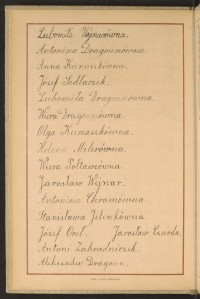 Ludomiła Wojnarówna.
Antonina Dragounówna.
Anna Kunaszkówna.
Józef Sedlaczek.
Ludomiła Dragounówna.
Wiera Dragounówna.
Olga Kunaszkówna.
Helena Melzrówna.
Wiera Połtawcówna.
Jarosław Wojnar.
Antonina Chromówna.
Stanisława Jelenkówna.
Józef Orel. Jarosław Czurda.
Antoni Zahradniczek.
Aleksander Dragoun.